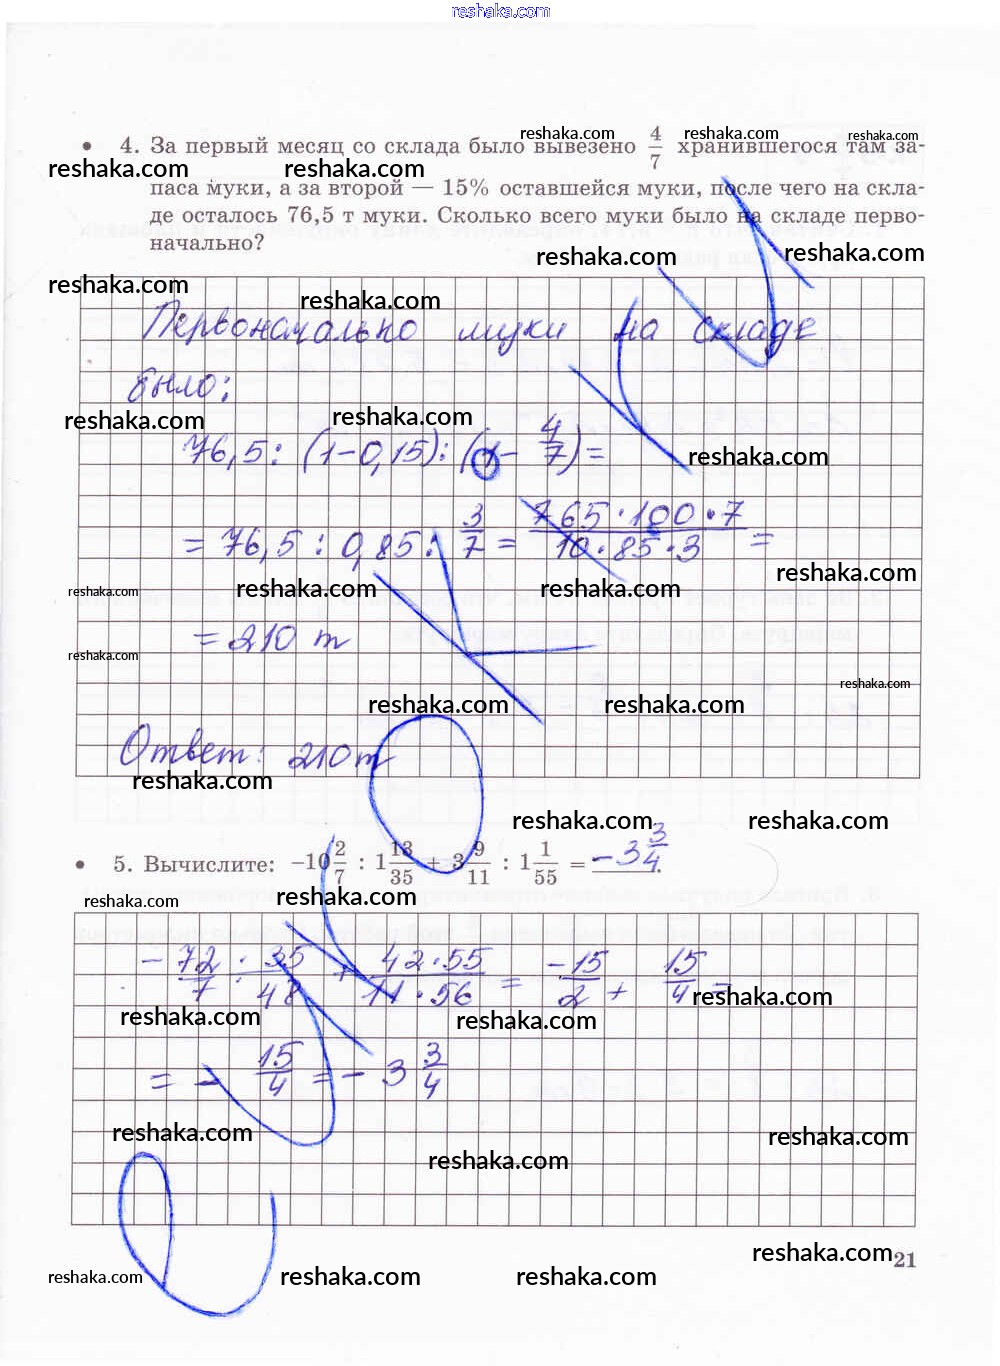 reshaka.com
reshaka.com reshaka.com reshaka.com
• 4. За первый месяц со склада было вывезено 4/7 хранившегося там за-
reshaka.com reshaka.com
паса муки, а за второй — 15% оставшейся муки, после чего на скла-
де осталось 76,5 т муки. Сколько всего муки было на складе перво-
начально?
reshaka.com reshaka.com
reshaka.com reshaka.com
Первоначально муки на складе
было:
reshaka.com reshaka.com
76,5 : (1-0,15) : (1- 4/7) =
reshaka.com
= 76,5 : 0,85 : 3/7 = 765·100·7/10·85·3 =
reshaka.com
reshaka.com reshaka.com reshaka.com
= 210 т
reshaka.com
reshaka.com
reshaka.com reshaka.com
Ответ: 210 т
reshaka.com
reshaka.com reshaka.com
• 5. Вычислите: −10 2/7 : 1 13/35 + 3 9/11 : 1 1/55 = -3 3/4.
reshaka.com reshaka.com
- 72/7 · 35/48 + 42·55/11·56 = -15/2 + 15/4 =
reshaka.com
reshaka.com reshaka.com
= - 15/4 = - 3 3/4
reshaka.com reshaka.com
reshaka.com
reshaka.com 21
reshaka.com reshaka.com reshaka.com